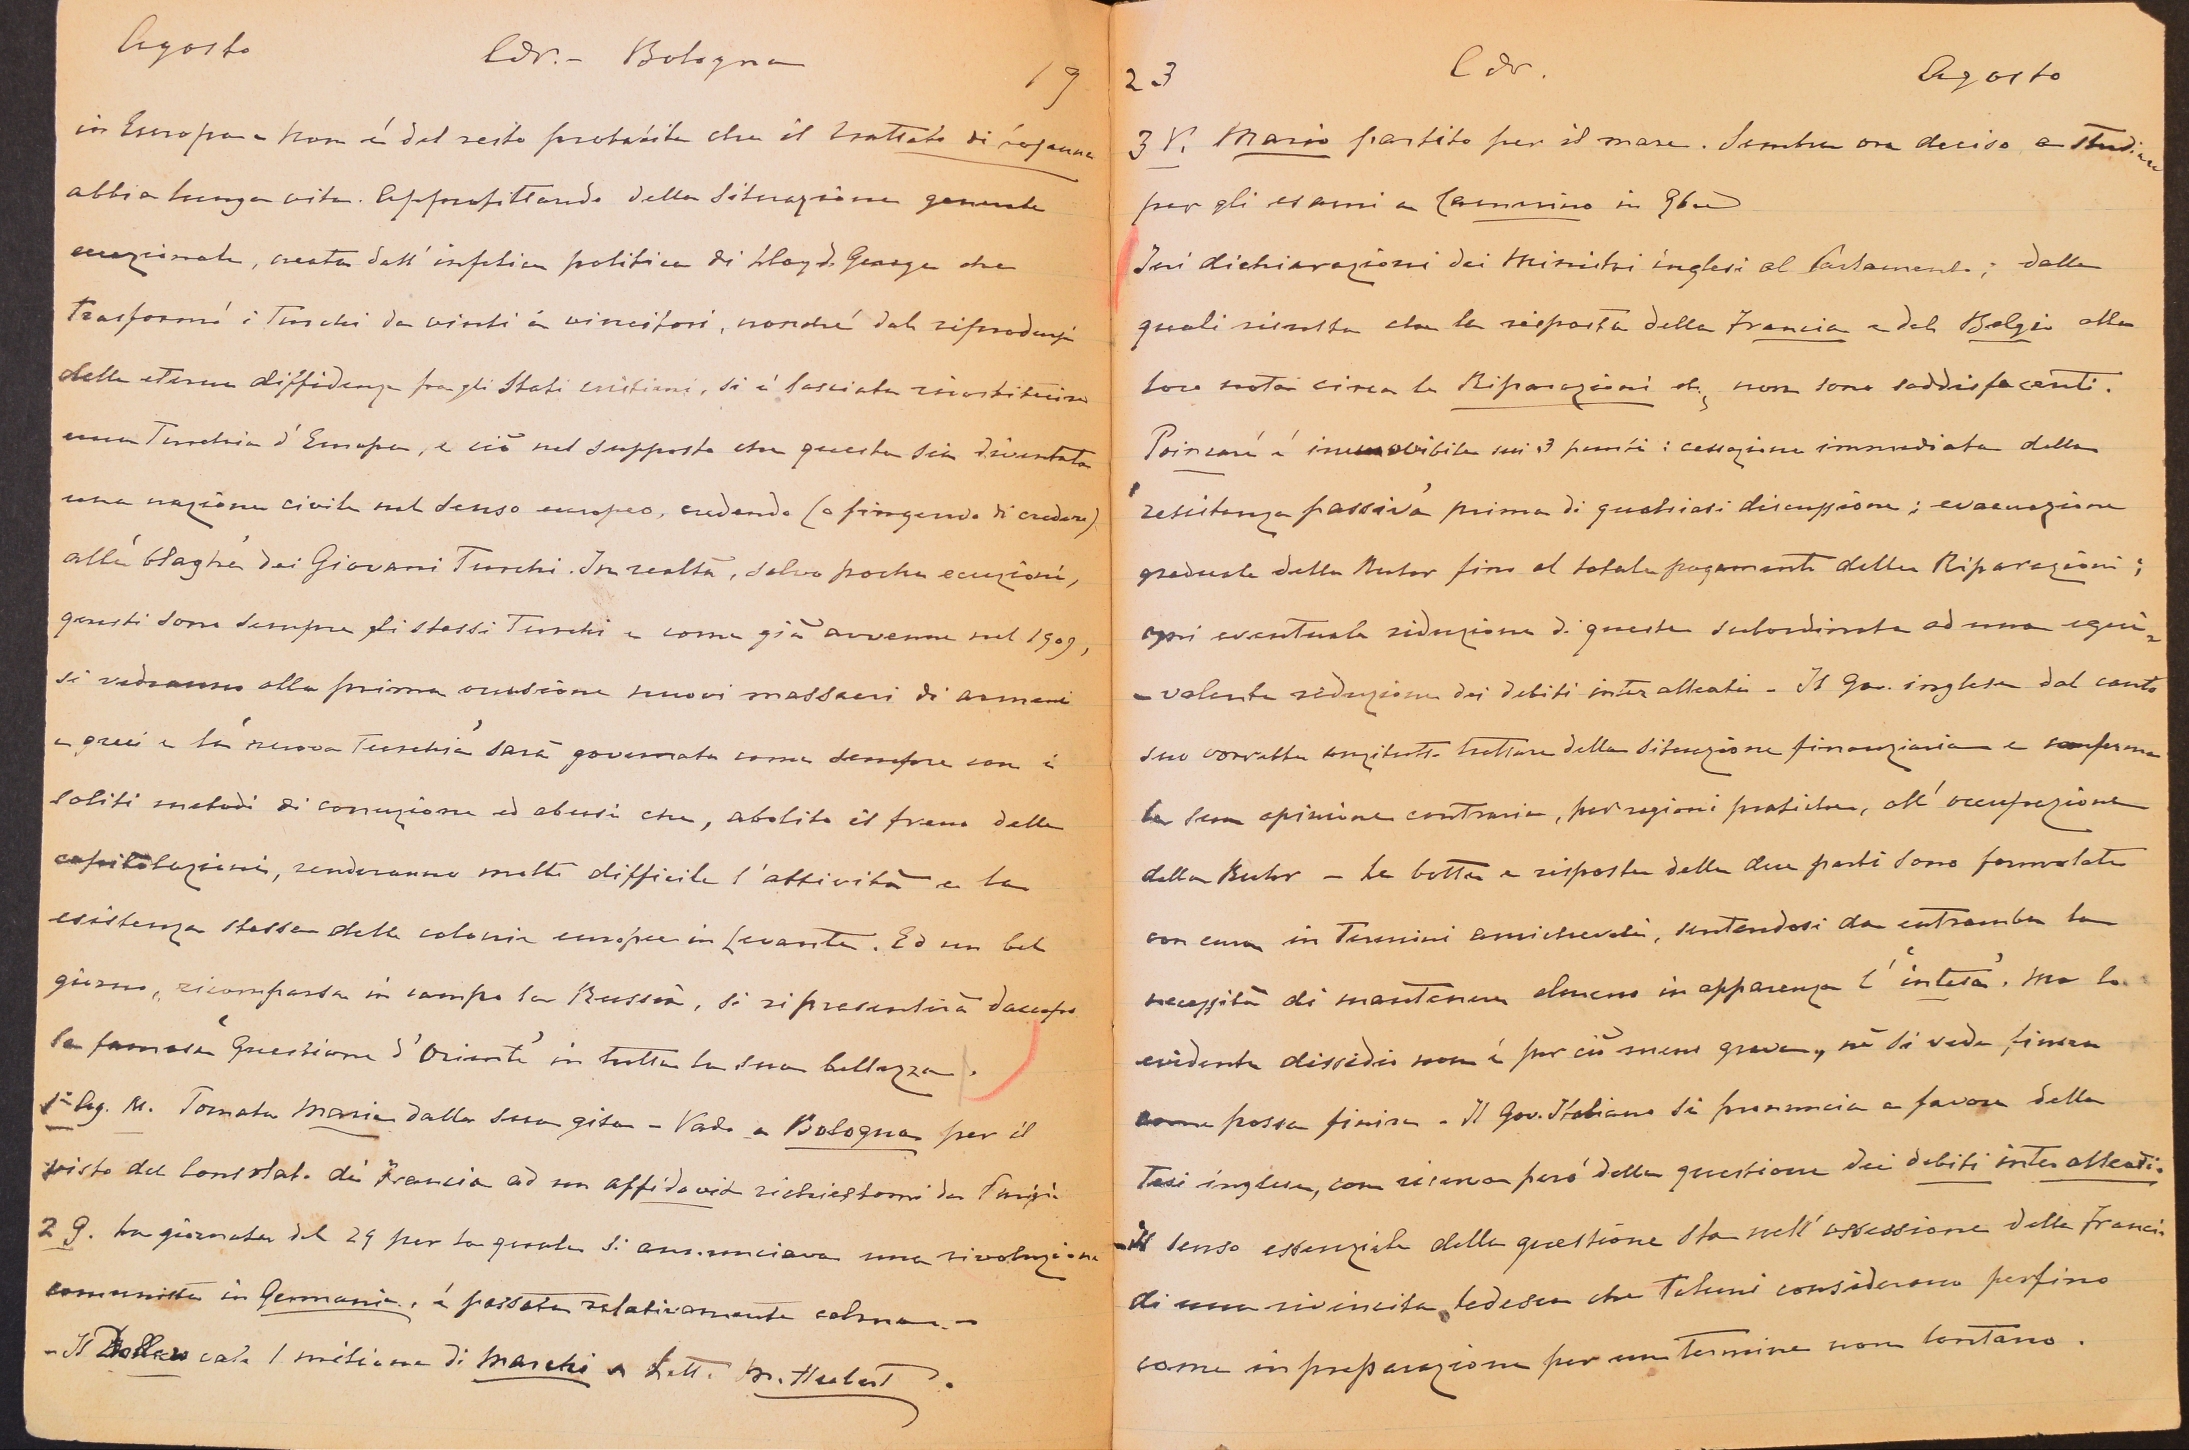 Agosto Cdr. - Bologna 19
in Europa e non è del resto probabile che il trattato di
abbia lunga vita. Approfittando della situazione generale
eccezionale, creata dall'infelice politica di Lloyd George che
trasformò i Turchi da vinti in vincitori, nonché dal riprodursi
delle eterne diffidenze fra gli Stati cristiani, si è lasciata ricostituire
una Turchia d'Europa, e ciò nel supposto che questa sia diventata
una nazione civile nel senso europeo, credendo (o fingendo di credere)
alle "blaghe" dei Giovani Turchi. In realtà, salvo poche eccezioni,
questi sono sempre gli stessi Turchi e come già avvenne nel 1909,
si vedranno alla prima occasione nuovi massacri di armeni
e greci e la "nuova Turchia" sarà governata come sempre con i
soliti metodi di corruzione ed abusi che, abolito il freno delle
capitolazioni, renderanno molto difficile l'attività e la
esistenza stessa delle colonie europee in Levante. Ed un bel
giorno, ricomparsa in campo la Russia, si ripresenterà daccapo
la famosa "Questione d'Oriente" in tutta la sua bellezza.
1° Ag. M. Tornata Maria dalla sua gita - Vado a Bologna per il
visto del Consolato di Francia ad un affidavit richiestomi da Parigi
2 G. La giornata del 29 per la quale si annunciava una rivoluzione
comunista in Germania, è passata relativamente calma. -
- Il Dollaro vale 1 milione di Marchi Lett. M. Hubert.
23 Cdr. Agosto
3 V. Mario partito per il mare. Sembra ora deciso a studiare
per gli esami a Camerino in 9bre
Ieri dichiarazioni dei Ministri inglesi al Parlamento; dalle
quali risulta che la risposta della Francia e del Belgio alla
loro nota circa le Riparazioni etc, non sono soddisfacenti.
Poincaré è inamovibile sui 3 punti: cessazione immediata della
"resistenza passiva" prima di qualsiasi discussione; evacuazione
graduale della Ruhr fino al totale pagamento delle Riparazioni;
ogni eventuale riduzione di queste subordinata ad una equi-
-valente riduzione dei debiti interalleati - Il Gov. inglese dal canto
suo vorrebbe anzitutto trattare della situazione finanziaria e conferma
la sua opinione contraria, per ragioni pratiche, all'occupazione
della Ruhr - Le botte e risposte delle due parti sono formulate
con cura in termini amichevoli, sentendosi da entrambe la
necessità di mantenere almeno in apparenza l'"intesa". Ma lo
evidente dissidio non è per ciò meno grave, nè si vede finora
come possa finire - Il Gov. Italiano si pronuncia a favore della
tesi inglese, con riserva però della questione dei debiti interalleati.
- Il senso essenziale della questione sta nell'ossessione della Francia
di una rivincita tedesca che taluni considerano perfino
come in preparazione per un termine non lontano.